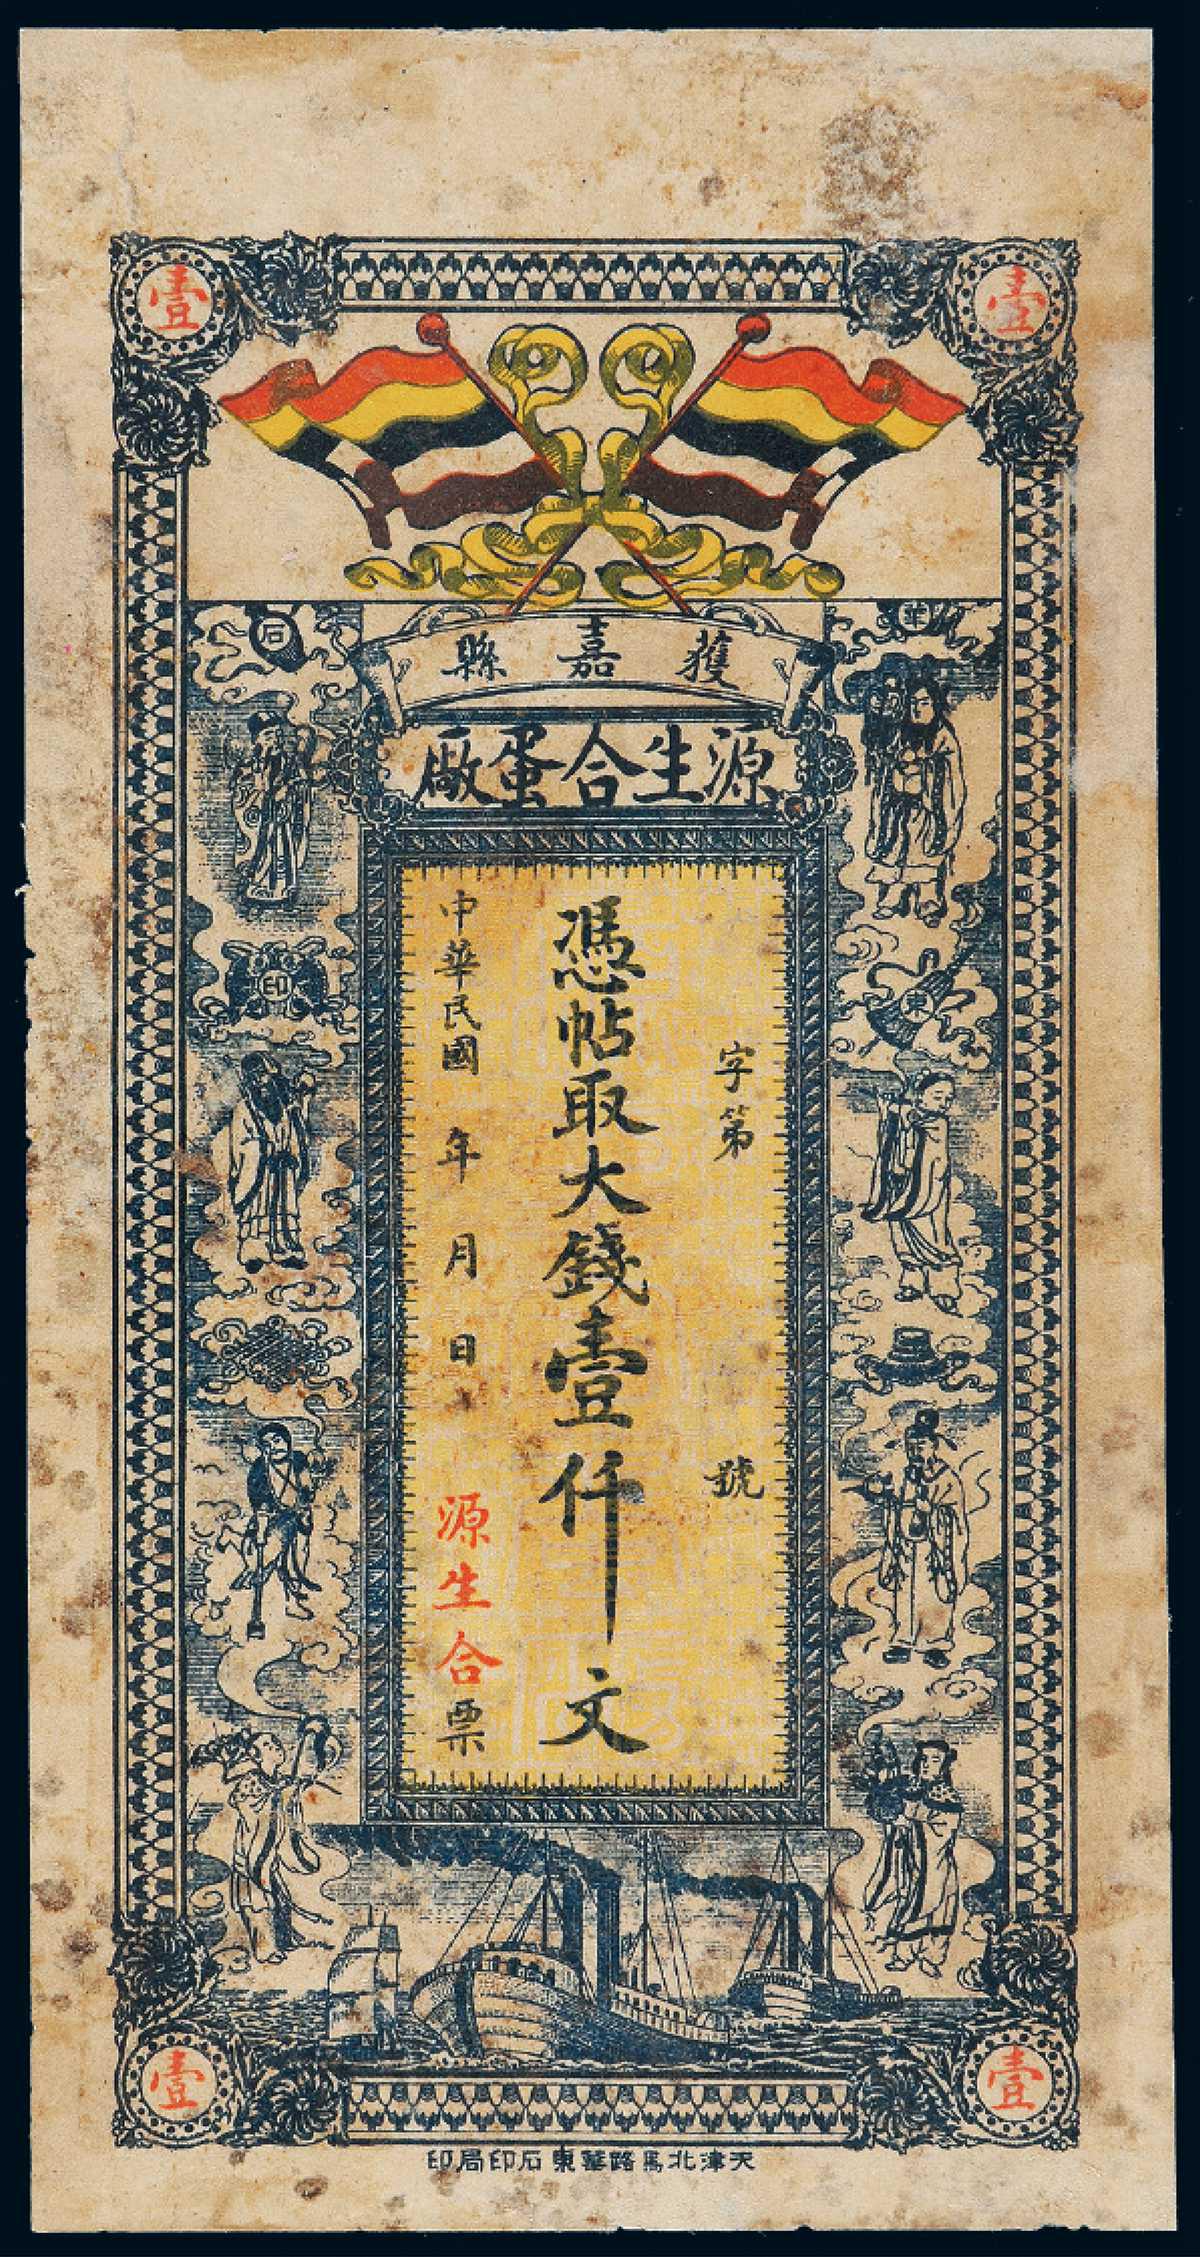 壹
壹
獲嘉縣
源生合蛋厰
字第 號
憑帖取大錢壹仟文
中華民國 年 月 日
源生合票
華
東
石
印
壹
壹
天津北馬路華東石印局印